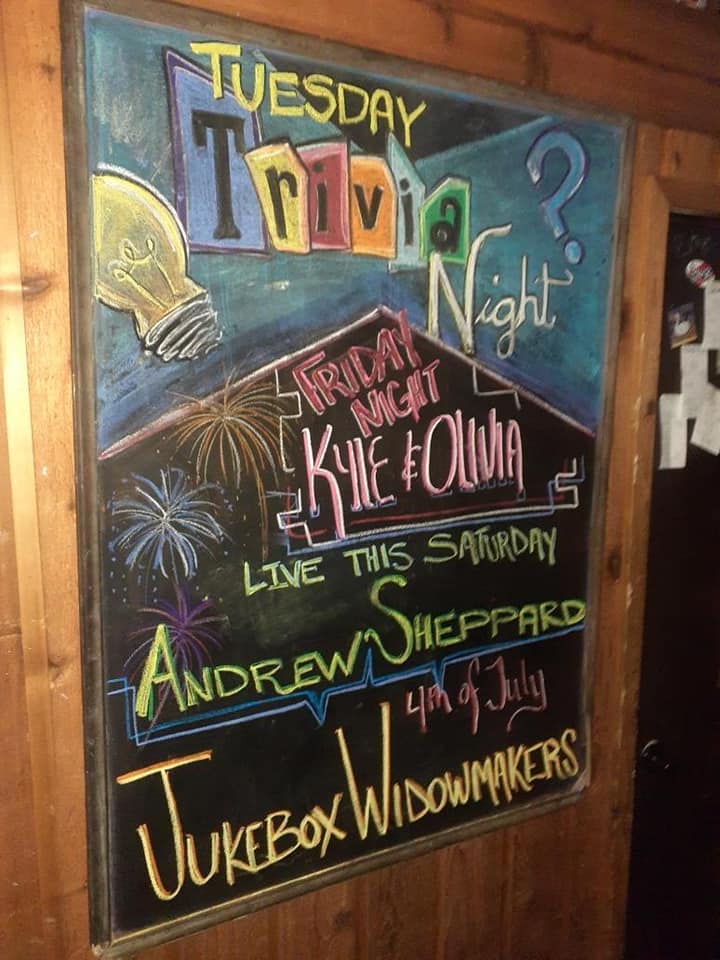 TUESDAY
Trivia
Night ?
FRIDAY
NIGHT
KYLE & OLIVIA
LIVE THIS SATURDAY
ANDREW SHEPPARD
4th of July
JUKEBOX WIDOWMAKERS